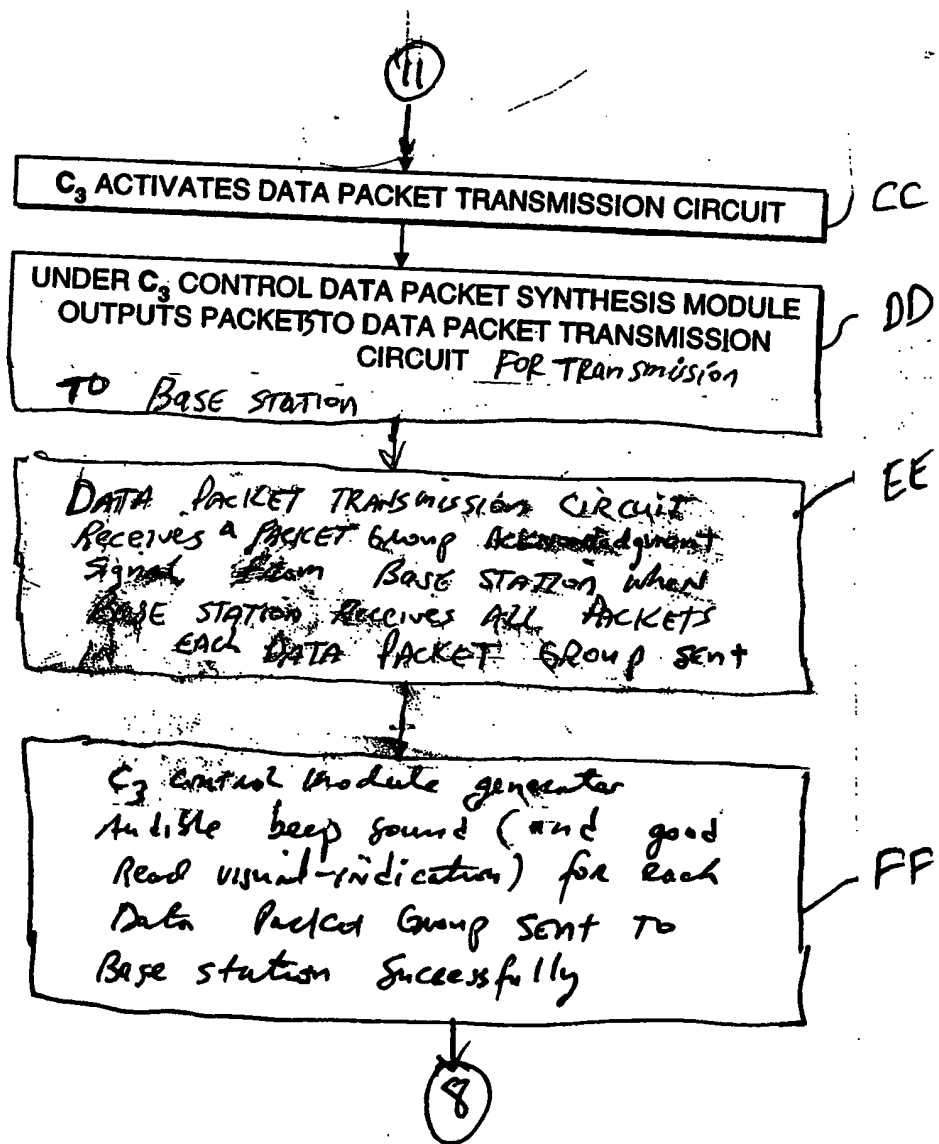 11
C3 ACTIVATES DATA PACKET TRANSMISSION CIRCUIT
CC
UNDER C3 CONTROL DATA PACKET SYNTHESIS MODULE
OUTPUTS PACKETS TO DATA PACKET TRANSMISSION
CIRCUIT FOR Transmission
TO Base STATION
DD
DATA PACKET TRANSMISSION CIRCUIT
Receives a PACKET Group Acknowledgment
Signal from BASE STATION when
BASE STATION Receives ALL PACKETS
EACH DATA PACKET GROUP sent
EE
C3 control module generator
Audible beep sound (and good
Read visual-indication) for each
Data Packet Group SENT TO
Base station Successfully
FF
8